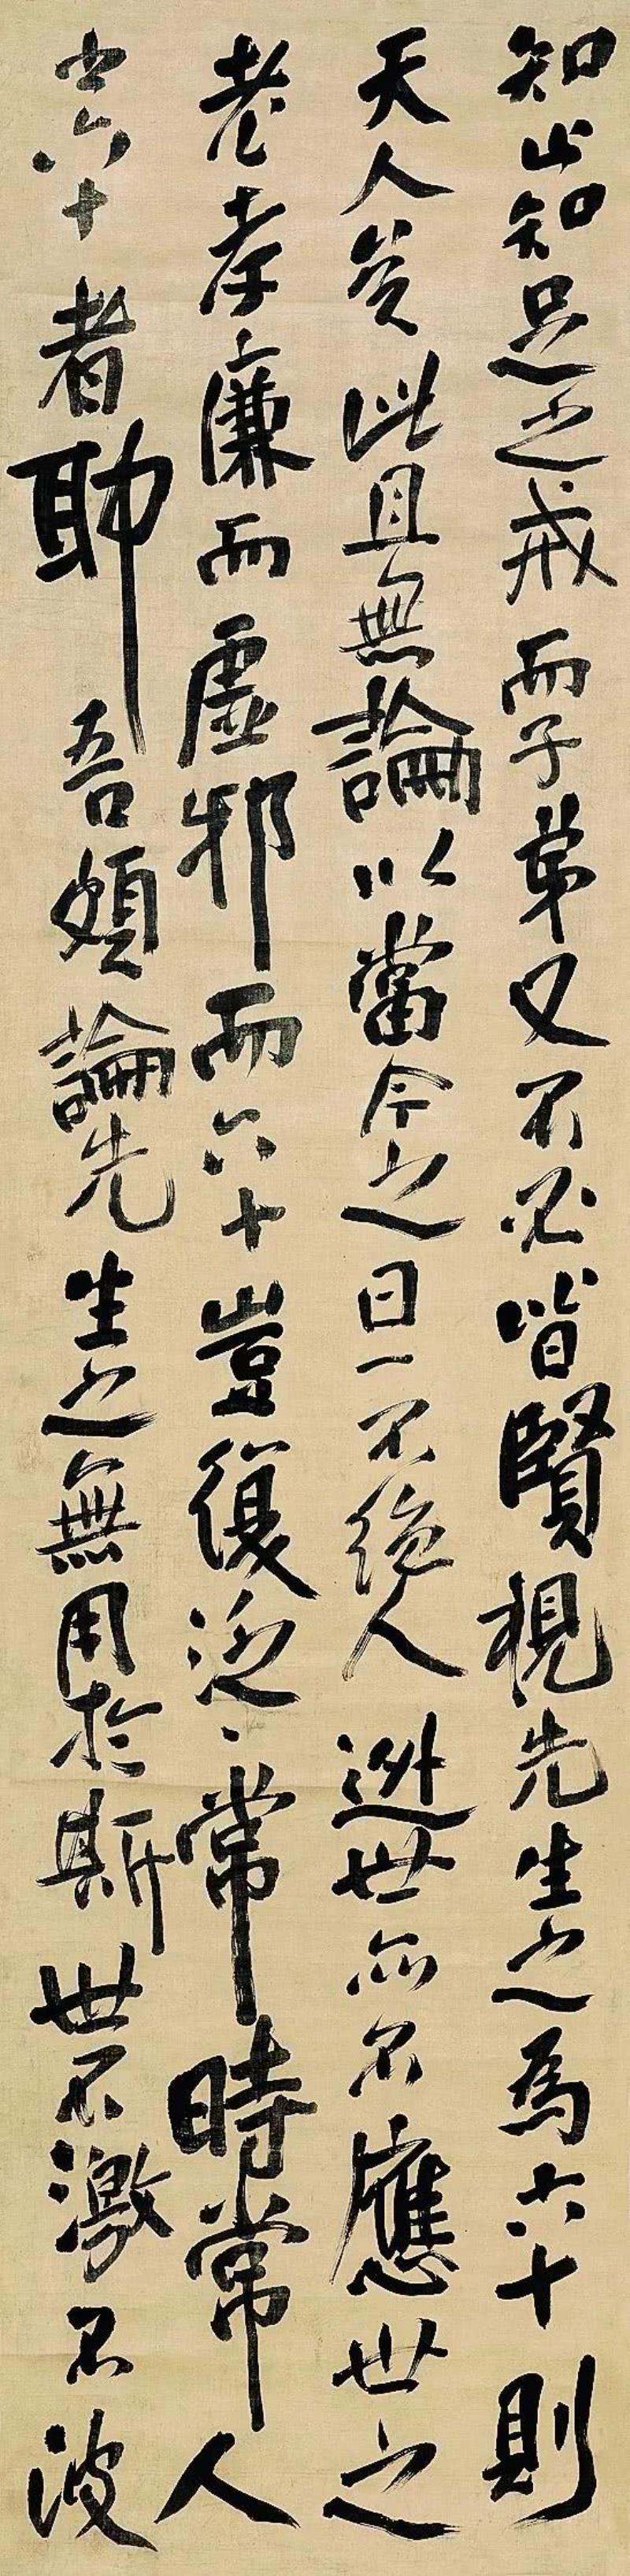 知止知足之戒而子弟又不必皆賢視先生之為六十則
天人矣此且無論以當今之日一不絕人迯世亦不應世之
老孝廉而虛邪而六十豈復泛〻常時常人
之六十者耶吾頗論先生之無用於斯世不激不波